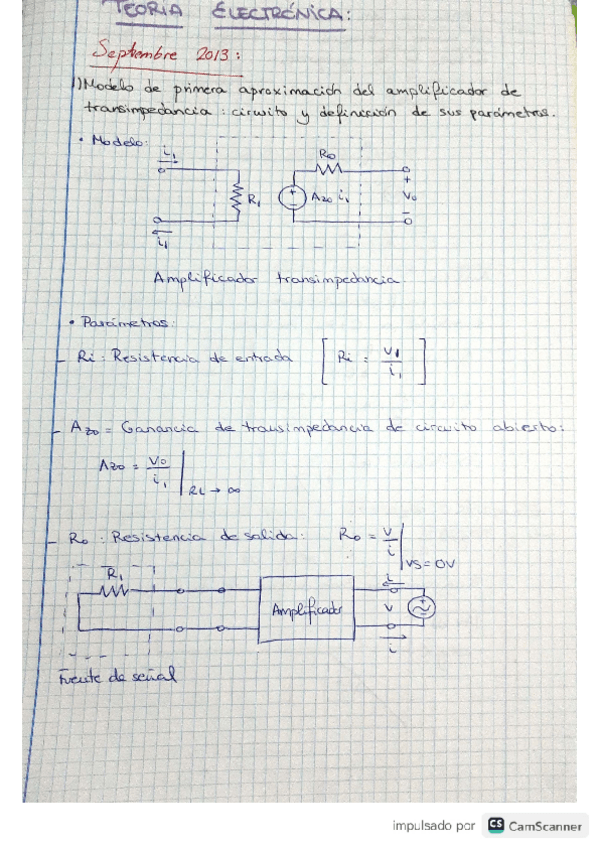 TEORIA ELECTRÓNICA:
Septiembre 2013:
1) Modelo de primera aproximación del amplificador de
transimpedancia: circuito y definición de sus parámetros.
• Modelo:
i1
R1
i1
Ro
Azo i1
+
Vo
-
Amplificador transimpedancia
• Parámetros:
- Ri: Resistencia de entrada [Ri = V1/i1]
- Azo = Ganancia de transimpedancia de circuito abierto:
Azo = Vo/i1 | RL → ∞
- Ro: Resistencia de salida: Ro = V/i | VS = 0V
R1
Amplificador
i
V
i
Fuente de señal
impulsado por CS CamScanner